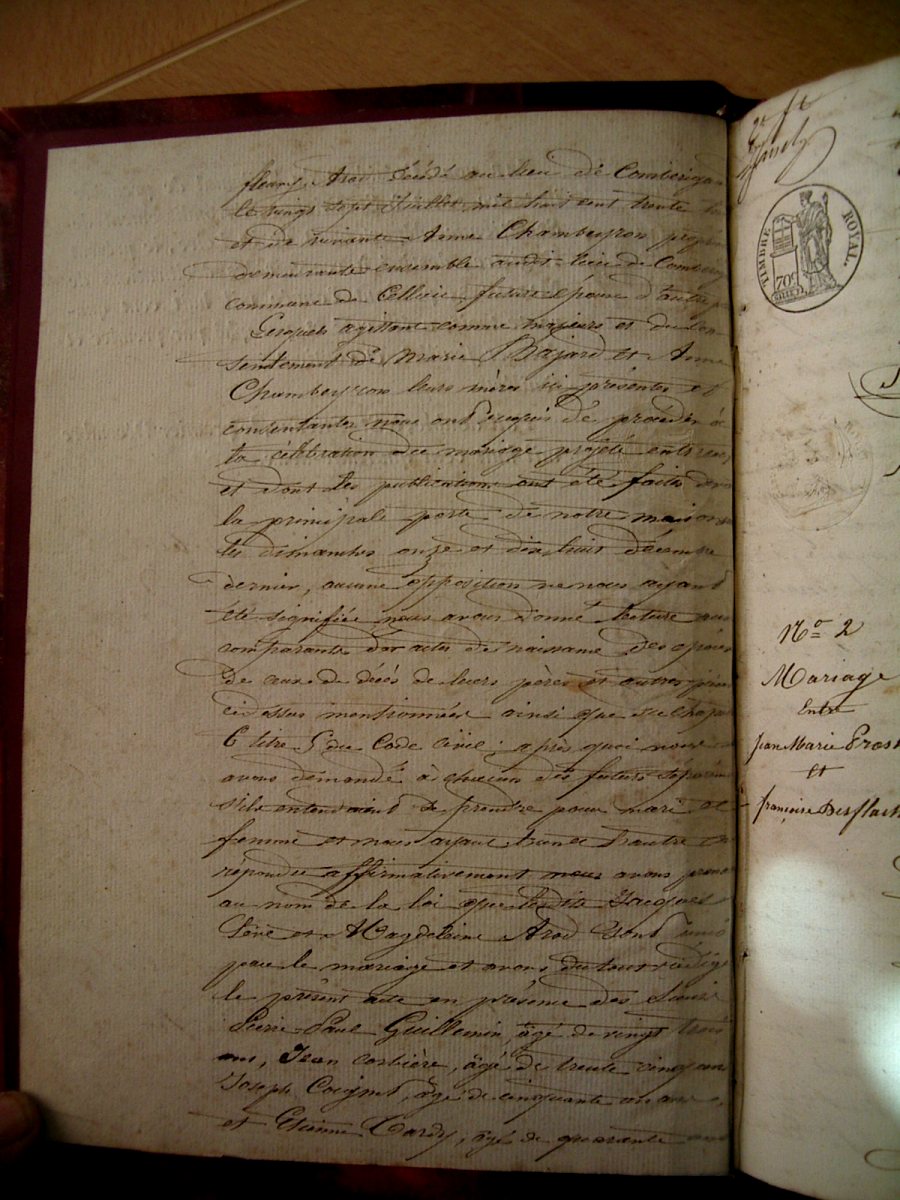 fleury Arod décédé au lieu de Combérigo
le vingt sept Juillet mil huit cent trente
et de vivante Anne Chambeyron
demeurante ensemble audit lieu de
commune de Cellieu future épouse d'autre
Lesquels agissant comme majeurs et du con
sentement de Marie Bajard et Anne
Chambeyron leurs mères ici présentes et
consentantes nous ont requis de procéder à
la célébration du mariage projeté entre eux
et dont les publications ont été faites
la principale porte de notre maison
les dimanches onze et dix huit décembre
dernier, aucune opposition ne nous ayant
été signifiée nous avons donné lecture aux
comparants des actes de naissance des époux
de ceux de décès de leurs pères et autres pièces
ci dessus mentionnées ainsi que du chapt
6 titre 5 du Code Civil; après quoi nous
avons demandé à chacun des futurs époux
s'ils entendaient se prendre pour mari et
femme et nous ayant l'un et l'autre
répondu affirmativement nous avons pronon
au nom de la loi que lesdits Jacques
Père et Magdeleine Arod sont unis
par le mariage et avons du tout rédigé
le présent acte en présence des Sieurs
Pierre Paul Guillemin, âgé de vingt trois
ans, Jean Corbière, âgé de trente cinq ans
Joseph Coignet, âgé de cinquante un ans,
et Etienne Tardy, âgé de quarante ans
TIMBRE ROYAL.
70c
No 2
Mariage
Entre
Jean Marie Prost
et
françoise Desflach